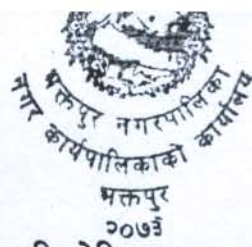 भक्तपुर नगरपालिका
नगर कार्यपालिकाको कार्यालय
भक्तपुर
२०७३